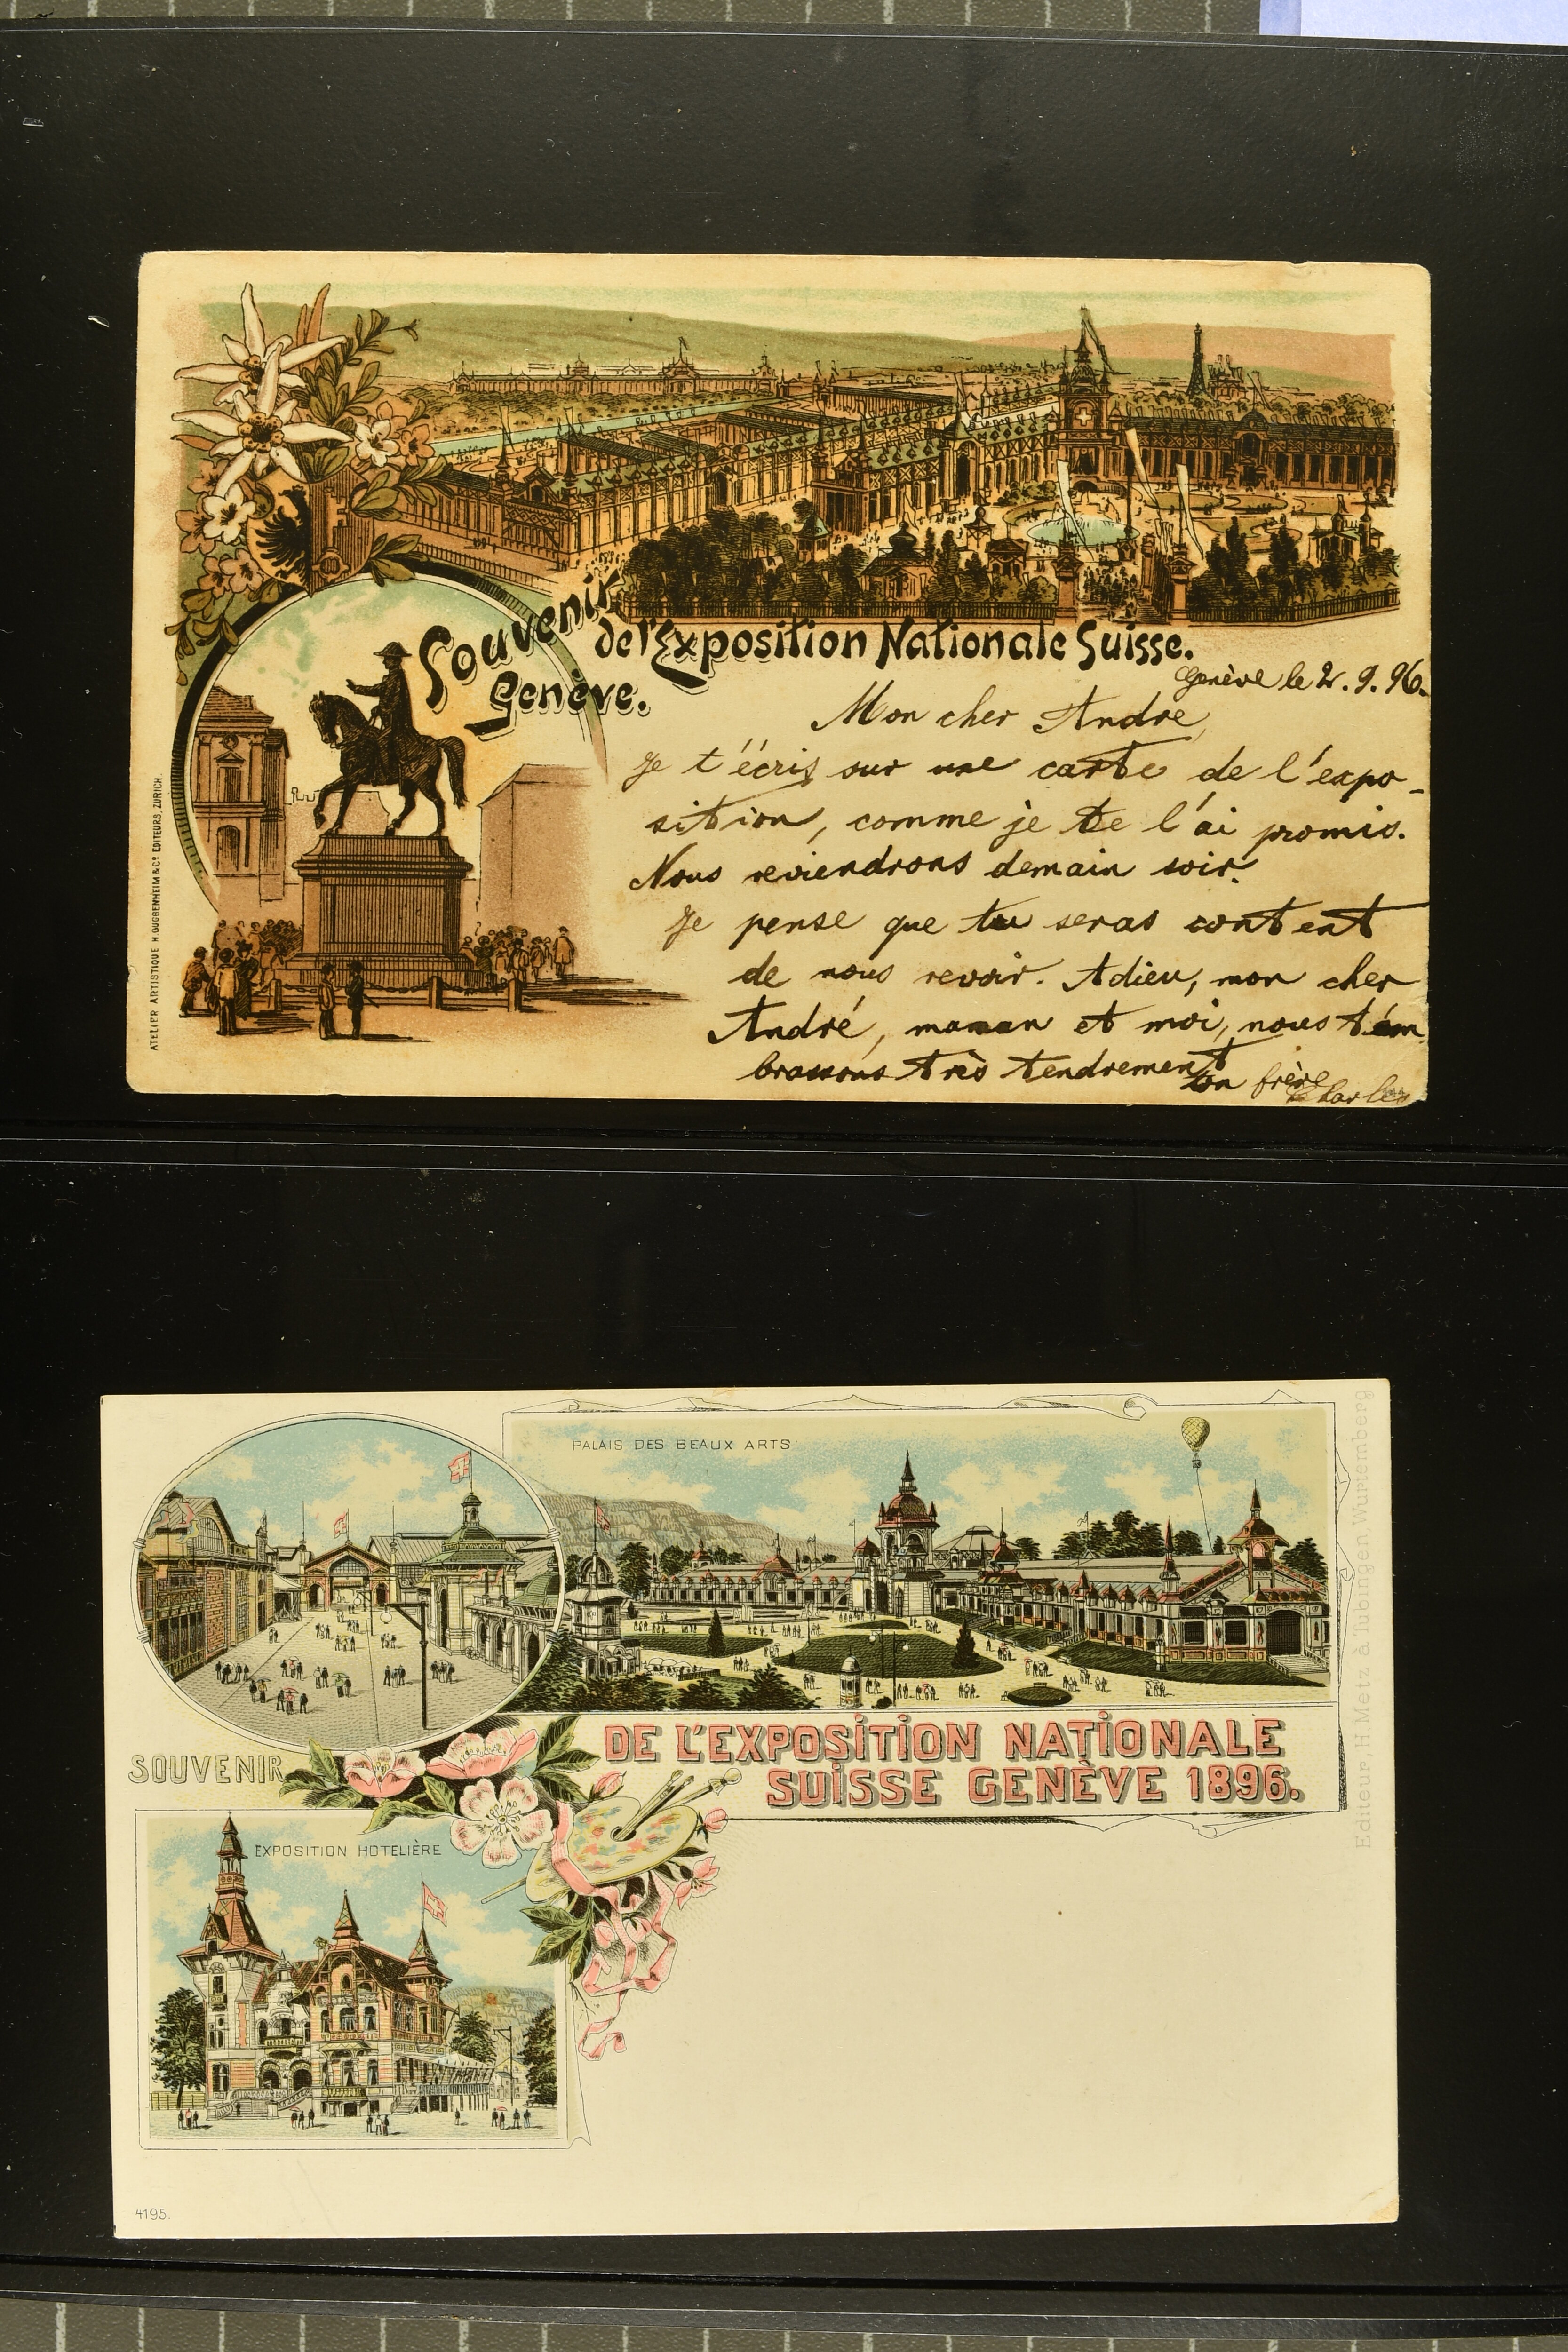 Souvenir
de l'Exposition Nationale Suisse.
Genève.
Genève le 2. 9. 96.
Mon cher André,
Je t'écris sur une carte de l'expo-
sition, comme je te l'ai promis.
Nous reviendrons demain soir.
Je pense que tu seras content
de nous revoir. Adieu, mon cher
André, maman et moi, nous t'em
brassons très tendrement
ton frère
Charles
ATELIER ARTISTIQUE H. GUGGENHEIM & Co. EDITEURS, ZÜRICH.
PALAIS DES BEAUX ARTS
SOUVENIR
DE L'EXPOSITION NATIONALE
SUISSE GENÈVE 1896.
EXPOSITION HOTELIÈRE
Editeur, H. Metz à Tubingen Wurtemberg
4195.